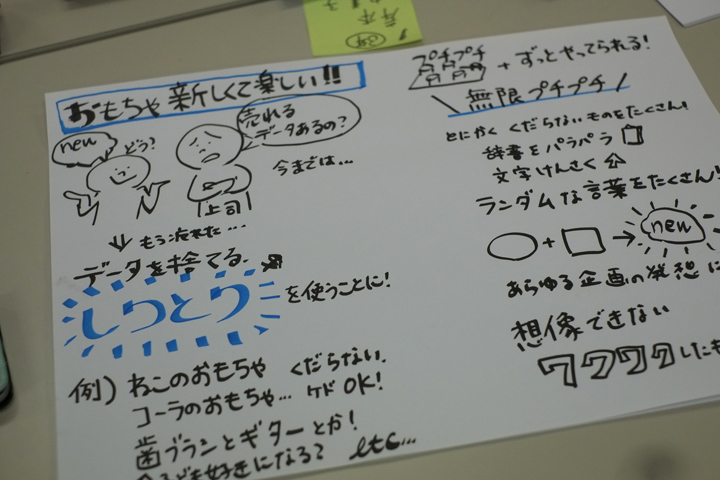 おもちゃ 新しくて楽しい!!
new
どう?
売れる
データあるの?
上司
今までは…
もう疲れた…
データを捨てる
しりとり
を使うことに!
例) ねこのおもちゃ くだらない
コーラのおもちゃ… ケド OK!
歯ブラシとギターとか!
ども好きになる? etc…
プチプチ
+ ずっとやってられる!
\ 無限プチプチ /
とにかく くだらないものをたくさん!
辞書をパラパラ
文字けんさく
ランダムな言葉をたくさん!
+ → new
あらゆる企画の発想に
想像できない
ワクワクしたも